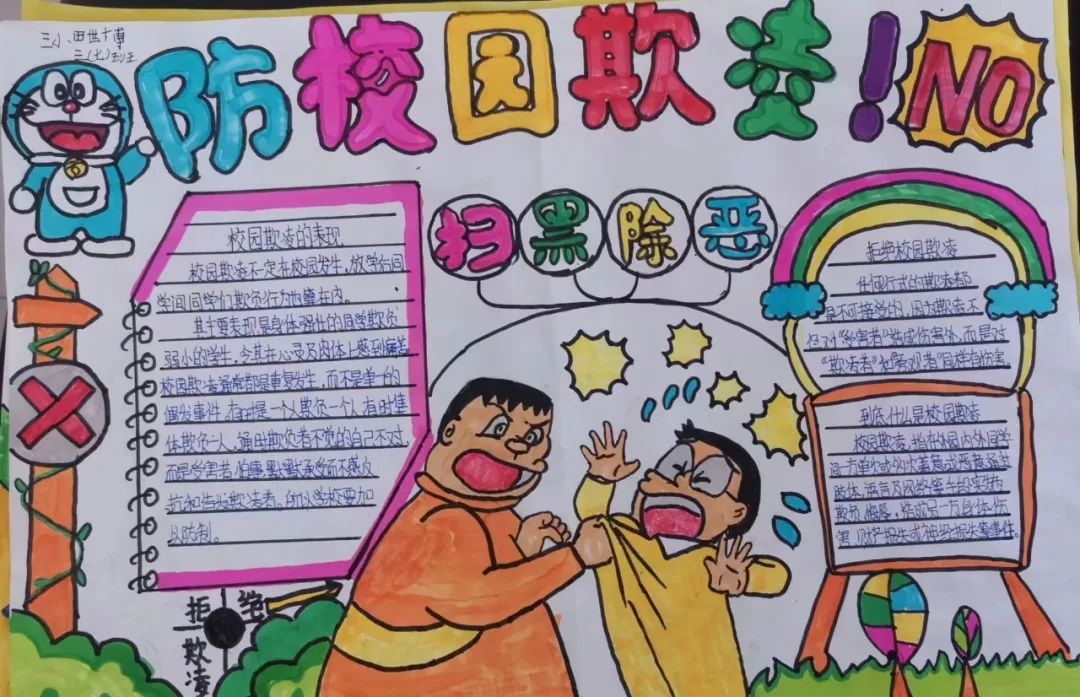 三小、田世博
三(七)班
防校园欺凌!NO
扫黑除恶
校园欺凌的表现
校园欺凌不一定在校园发生,放学后同
学间同学们欺负行为也算在内。
其主要表现是身体强壮的同学欺负
弱小的学生,令其在心灵及肉体上感到痛苦
校园欺凌通常都是重复发生,而不是单一的
偶发事件,有时是一个人欺负一个人,有时集
体欺负一人,通时欺负者不觉的自己不对,
而是受害者怕事,默默承受而不感反
抗和告发欺凌者,所以学校要加
以防制。
拒绝校园欺凌
任何形式的欺凌都
是不可接受的,因为欺凌不
但对“受害者”造成伤害外,而是对
“欺凌者”和“旁观者”同样有伤害。
到底什么是校园欺凌
校园欺凌,指在校园内外同学
间一方单次或多次蓄意或恶意通过
肢体、语言及网络等手段实施
欺负、侮辱,造成另一方身体伤
害、财产损失或神经损失等事件。
拒绝
欺凌